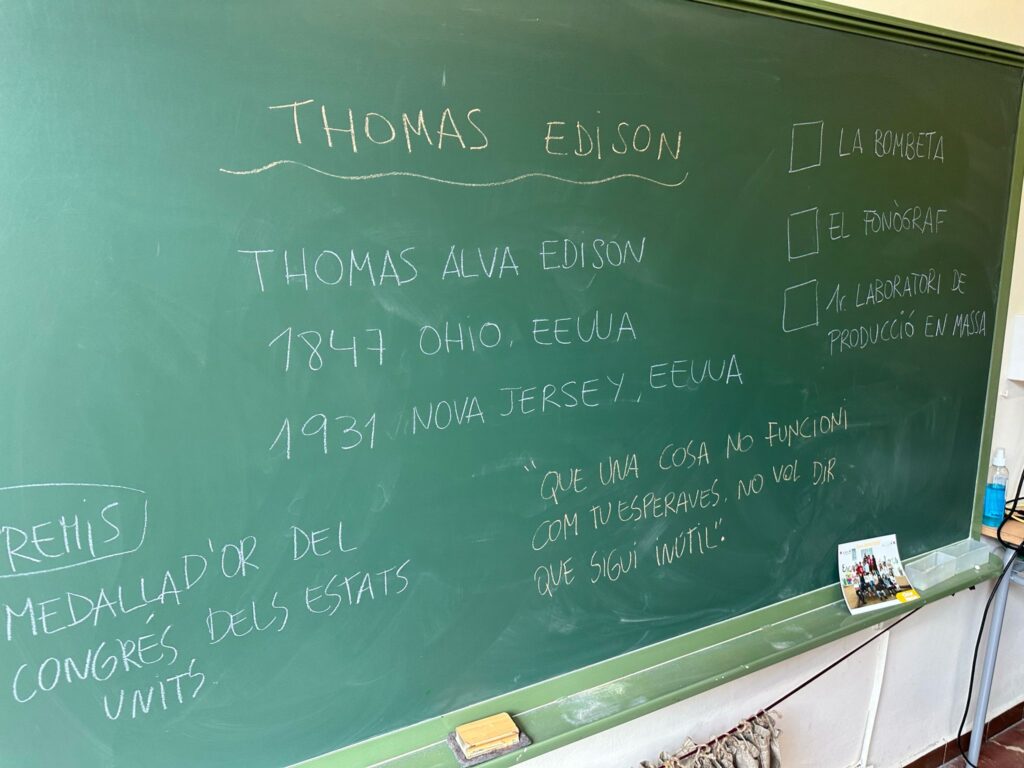 THOMAS EDISON
THOMAS ALVA EDISON
1847 OHIO, EEUUA
1931 NOVA JERSEY, EEUUA
LA BOMBETA
EL FONÒGRAF
1r. LABORATORI DE
PRODUCCIÓ EN MASSA
"QUE UNA COSA NO FUNCIONI
COM TU ESPERAVES, NO VOL DIR
QUE SIGUI INÚTIL".
REMIS
MEDALLA D'OR DEL
CONGRÉS DELS ESTATS
UNITS